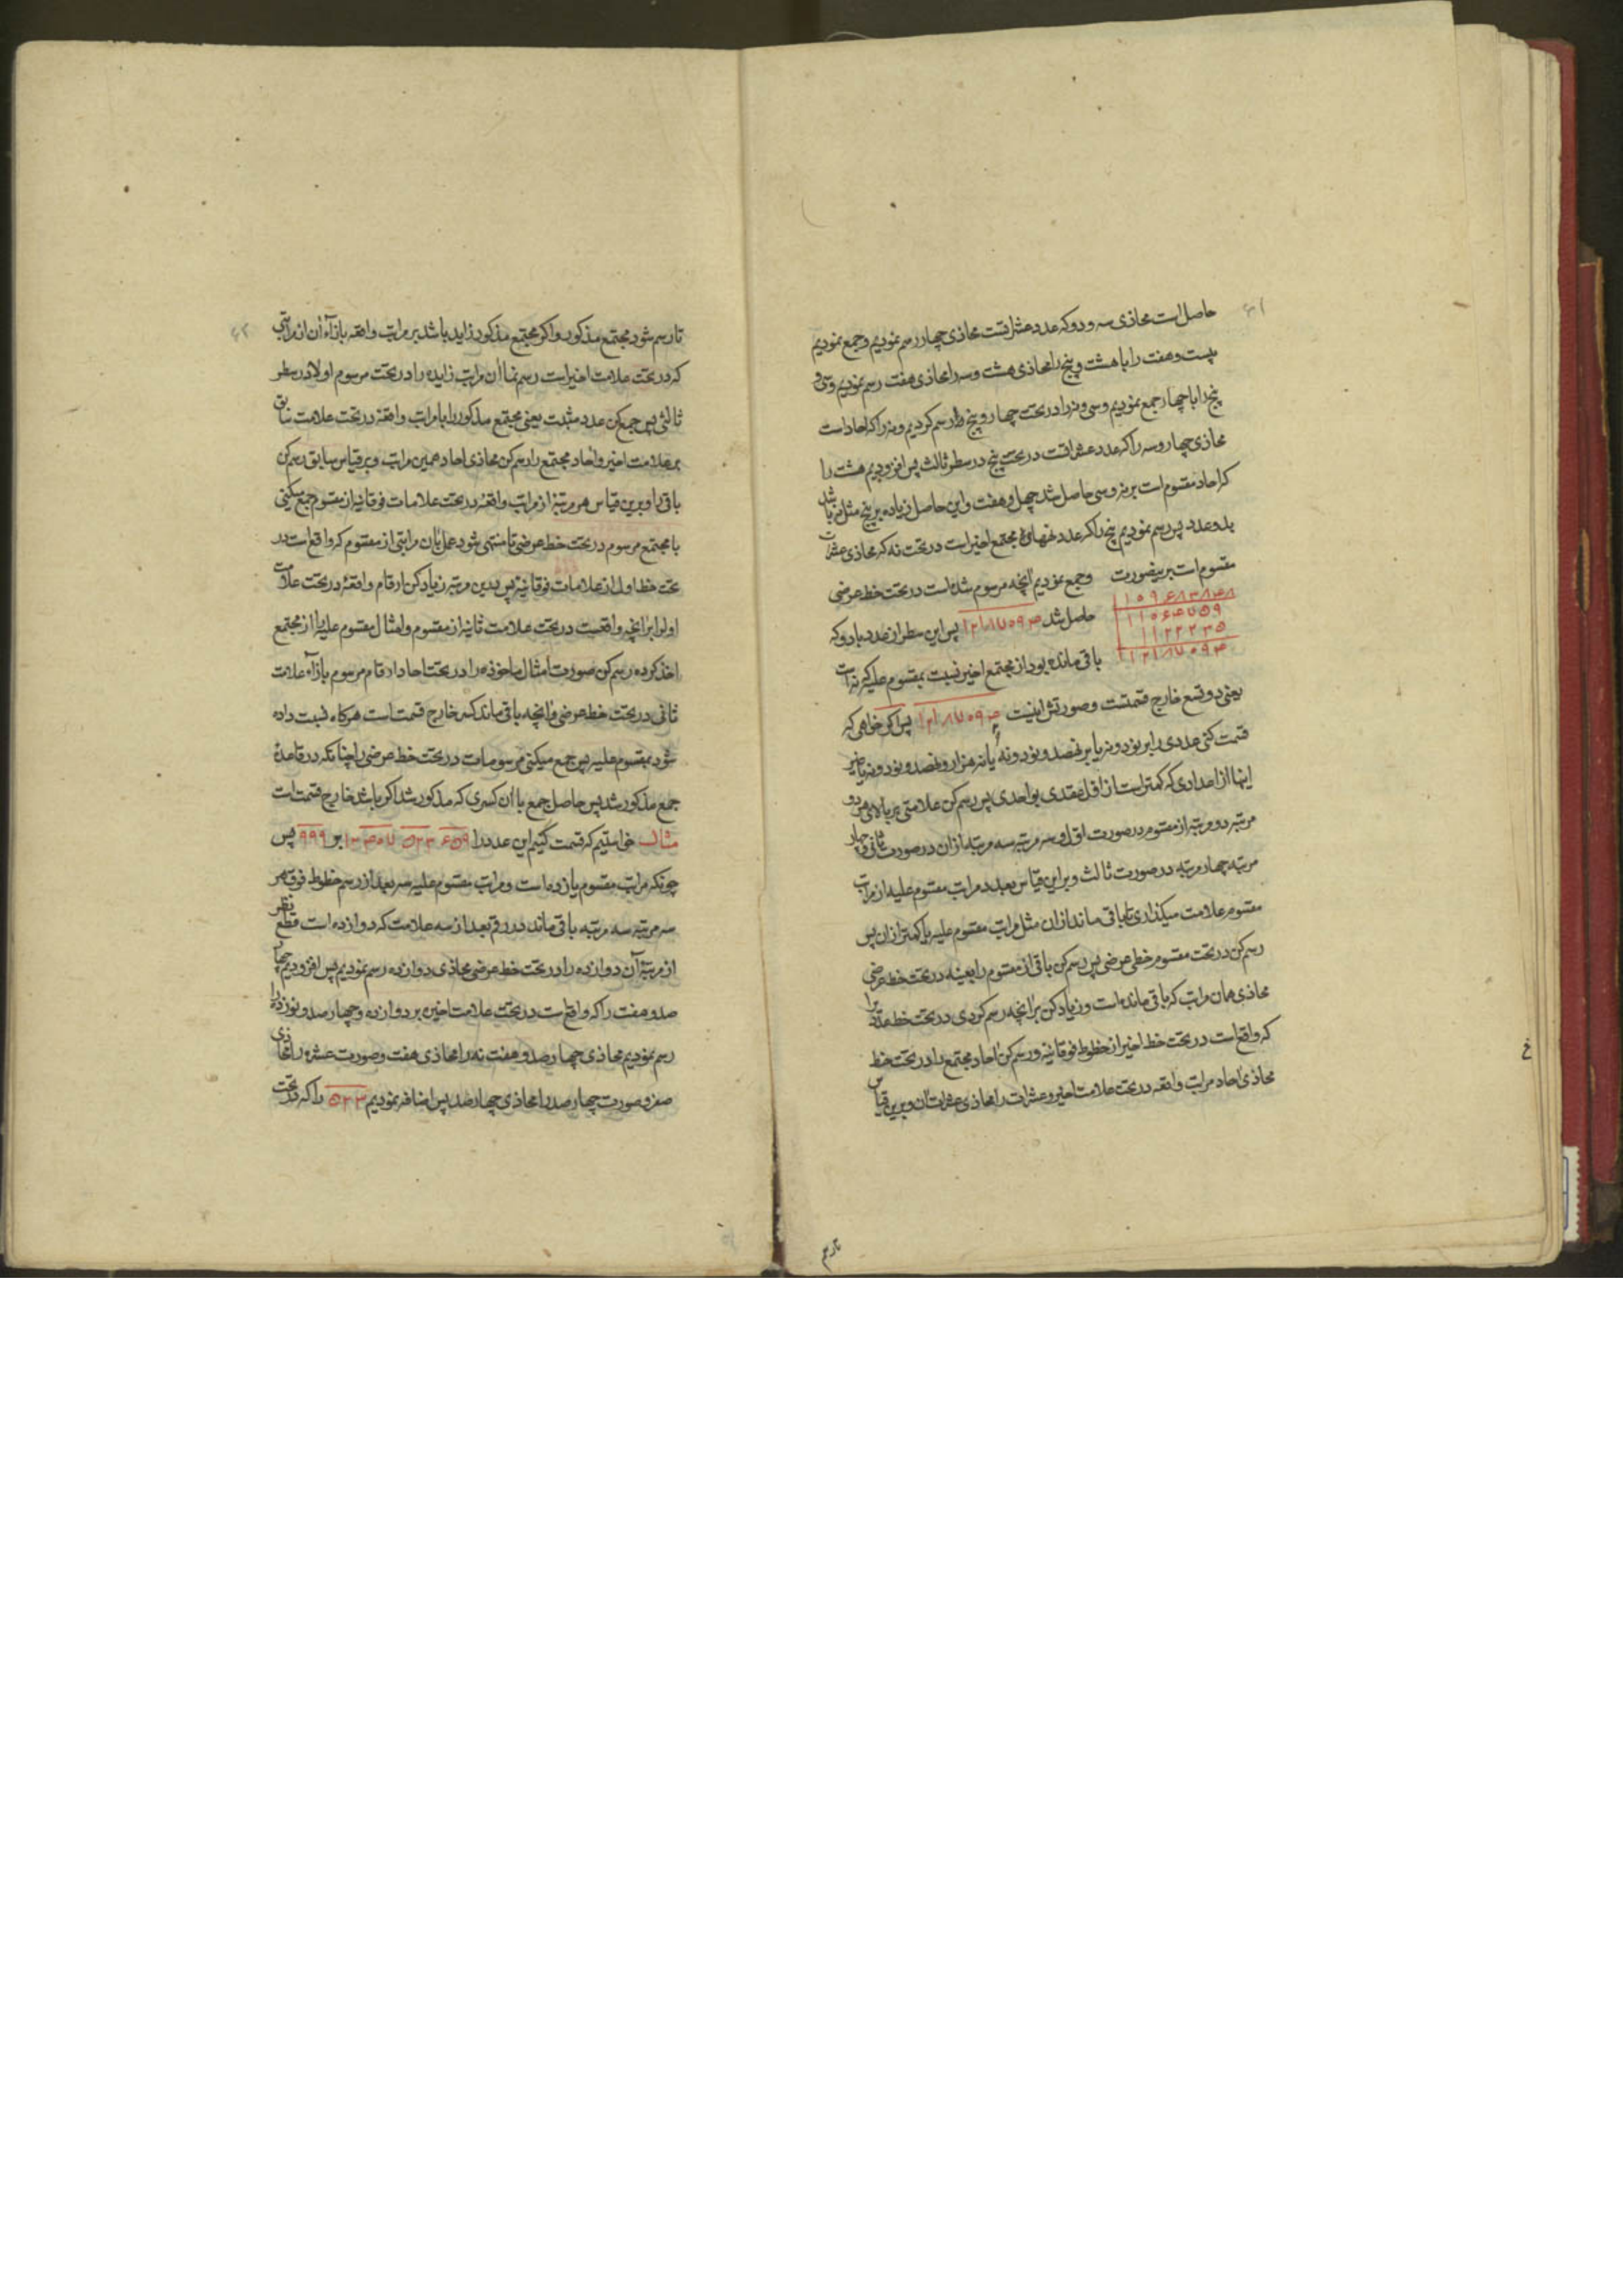 ۴۱
حاصل است محاذی سه و دو که عدد عشراتست محاذی چهار رسم نمودیم و جمع نمودیم
بیست و هفت را با هشت و پنج را محاذی هشت و سه را محاذی هفت رسم نمودیم و سی و
پنج را با چهار جمع نمودیم و سی و نه را در تحت چهار و پنج رسم کردیم و نه را که احاد است
محاذی چهار و سه را که عدد عشراتست در تحت پنج در سطر ثالث پس افزودیم هشت را
که احاد مقسوم است بر نه و سی حاصل شد چهل و هفت و این حاصل زیاده بر پنج مثل نه باشد
بدو عدد پس رسم نمودیم پنج را که عدد نه‌های مجتمع اخیر است در تحت نه که محاذی عشرات
مقسوم است برین صورت وجمع نمودیم آنچه مرسوم شده است در تحت خط عرضی
حاصل شد ۱۲۱۸۷۵۹۴ پس این سطر از عدد باد و که
باقی مانده بود از مجتمع اخیر نسبت بمقسوم علیه که نه است
یعنی دو تسع خارج قسمتست و صورتش اینست ۱۲۱۸۷۵۹۴ پس اگر خواهی که
قسمت کنی عددی را بر نود و نه یا بر نهصد و نود و نه یا نه هزار و نهصد و نود و نه یا غیر
اینها از اعدادی که کمتر است از اقل عقدی بواحدی پس رسم کن علامتی بر بالای هر دو
مرتبه دو مرتبه از مقسوم در صورت اول و سه مرتبه سه مرتبه از آن در صورت ثانی و چهار
مرتبه چهار مرتبه در صورت ثالث و بر این قیاس بعدد مراتب مقسوم علیه از مراتب
مقسوم علامت میگذاری تا باقی ماند از آن مثل مراتب مقسوم علیه یا کمتر از آن پس
رسم کن در تحت مقسوم خطی عرضی پس رسم کن باقی از مقسوم را بعینه در تحت خط عرضی
محاذی همان مراتب که باقی مانده است و زیاد کن بر آنچه رسم کردی در تحت خط عدد را
که واقع است در تحت خط اخیر از خطوط فوقانیه و رسم کن احاد مجتمع را در تحت خط
محاذی احاد مراتب واقعه در تحت علامت اخیر و عشرات را محاذی عشرات آن و برین قیاس
۴۲
تا رسم شود مجتمع مذکور و اگر مجتمع مذکور زاید باشد بر مراتب واقعه بازاء آن از مراتبی
که در تحت علامت اخیر است رسم نما آن مراتب زایده را در تحت مرسوم اولا در سطر
ثالثی پس جمع کن عدد مثبت یعنی مجتمع مذکور را با مراتب واقعه در تحت علامت سابق
بر علامت اخیر و احاد مجتمع را رسم کن محاذی احاد همین مراتب و بر قیاس سابق رسم کن
باقی را و برین قیاس هر مرتبه از مراتب واقعه در تحت علامات فوقانیه از مقسوم جمع میکنی
با مجتمع مرسوم در تحت خط عرضی تا منتهی شود عمل بآن مراتبی از مقسوم که واقع است در
تحت خط اول از علامات فوقانیه پس بدین مرتبه زیاد کن ارقام واقعه در تحت علامت
اولرا بر آنچه واقعست در تحت علامت ثانیه از مقسوم و امثال مقسوم علیه را از مجتمع
اخذ کرده رسم کن صورت امثال ماخوذه را در تحت احاد ارقام مرسوم بازآء علامت
ثانی در تحت خط عرضی و آنچه باقی ماند کسر خارج قسمت است هرگاه نسبت داده
شود بمقسوم علیه پس جمع میکنی مرسومات در تحت خط عرضی را چنانکه در قاعدهٔ
جمع مذکور شد پس حاصل جمع با آن کسری که مذکور شد اگر باشد خارج قسمت است
مثال خواستیم که قسمت کنیم این عدد را بر ۹۹۹ پس
چونکه مراتب مقسوم یازده است و مراتب مقسوم علیه سه بعد از رسم خطوط فوق هر
سه مرتبه سه مرتبه باقی ماند در رقم بعد از سه علامت که دوازده است قطع نظر
از مرتبهٔ آن دوازده را در تحت خط عرضی محاذی دوازده رسم نمودیم پس افزودیم چهار
صد و هفت را که واقع است در تحت علامت اخیر بر دوازده و چهار صد و نوزده را
رسم نمودیم محاذی چهار صد و هفت نه را محاذی هفت و صورت عشره را محاذی
صفر و صورت چهار صد را محاذی چهار صد پس اضافه نمودیم ۵۲۳ را که در تحت
تا رسم